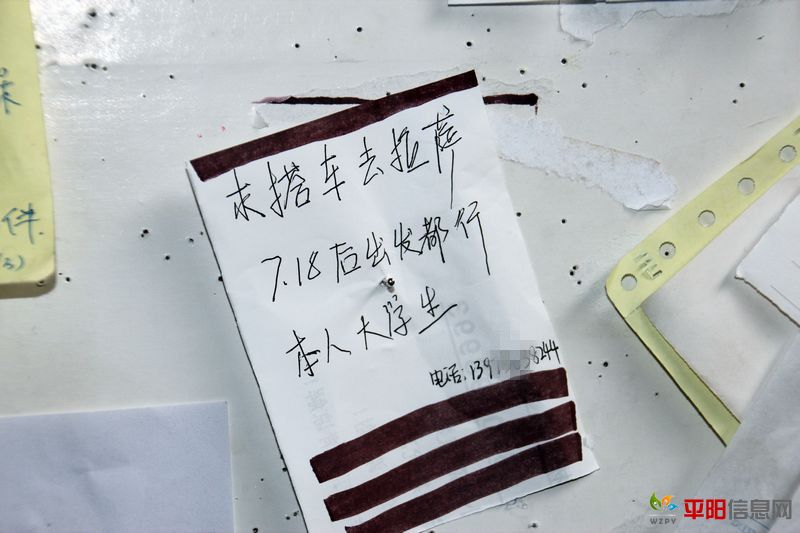 求搭车去拉萨
7.18后出发都行
本人大学生
电话:139 58244
件
WZPY 平阳信息网